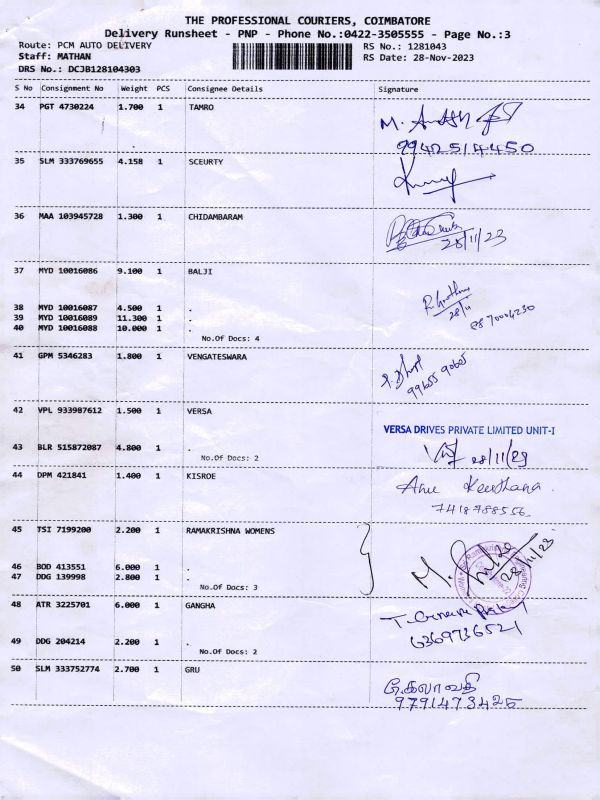 THE PROFESSIONAL COURIERS, COIMBATORE
Delivery Runsheet - PNP - Phone No.:0422-3505555 - Page No.:3
Route: PCM AUTO DELIVERY RS No.: 1281043
Staff: MATHAN RS Date: 28-Nov-2023
DRS No.: DCJB128104303
S No Consignment No Weight PCS Consignee Details Signature
34 PGT 4730224 1.700 1 TAMRO
M.
9942514450
35 SLM 333769655 4.158 1 SCEURTY
36 MAA 103945728 1.300 1 CHIDAMBARAM
28/11/23
37 MYD 10016086 9.100 1 BALJI
38 MYD 10016087 4.500 1 .
39 MYD 10016089 11.300 1 .
28/11
40 MYD 10016088 10.000 1 .
No.Of Docs: 4
41 GPM 5346283 1.800 1 VENGATESWARA
42 VPL 933987612 1.500 1 VERSA
VERSA DRIVES PRIVATE LIMITED UNIT-I
43 BLR 515872087 4.800 1 .
28/11/23
No.Of Docs: 2
44 DPM 421841 1.400 1 KISROE
Anu Keerthana.
7418788556.
45 TSI 7199200 2.200 1 RAMAKRISHNA WOMENS
46 BOD 413551 6.000 1 .
47 DDG 139998 2.800 1 .
28/11/23
No.Of Docs: 3
48 ATR 3225701 6.000 1 GANGHA
T.
6369736521
49 DDG 204214 2.200 1 .
No.Of Docs: 2
50 SLM 333752774 2.700 1 GRU
கலாவதி
9791473425